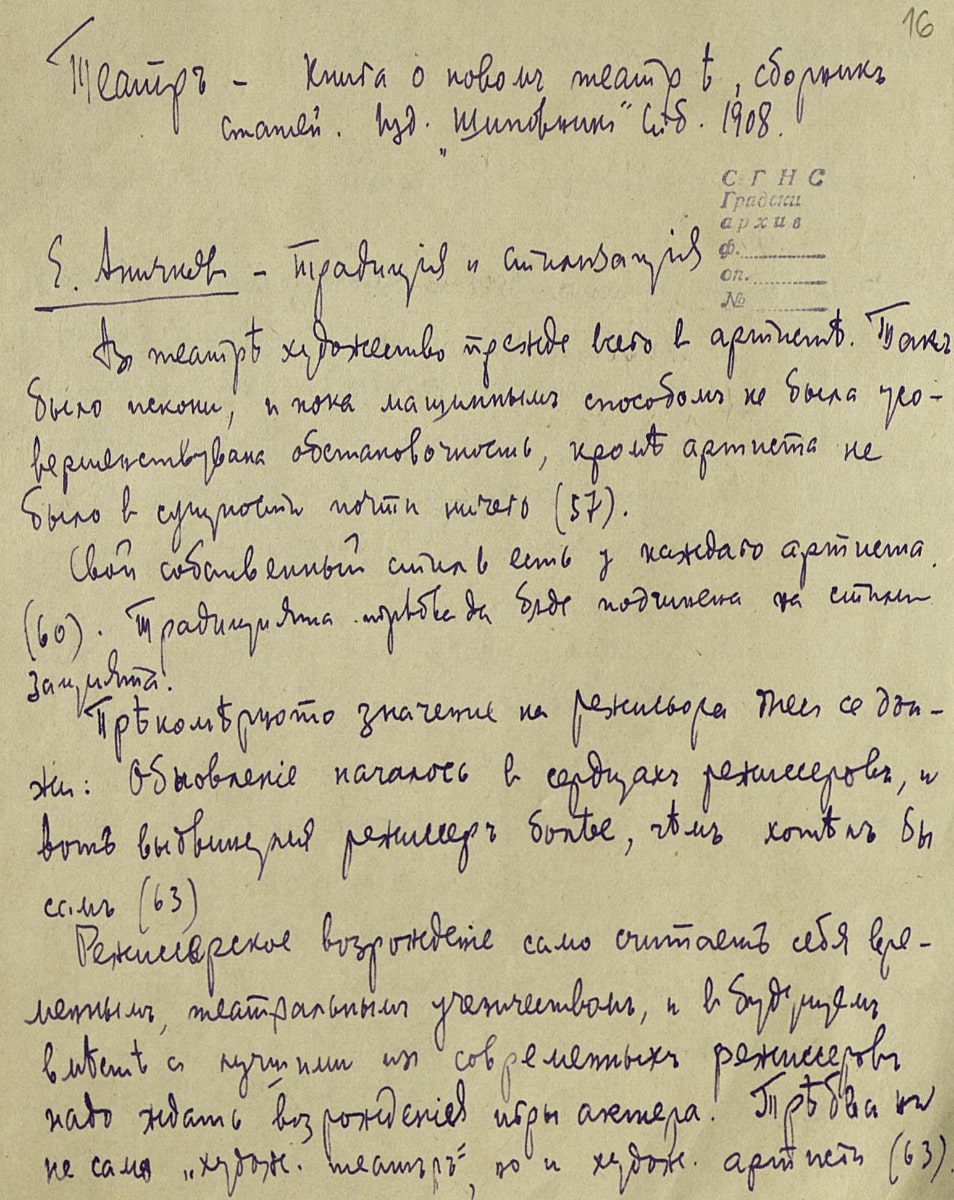 16
Театръ – Книга о новомъ театрѣ, сборникъ
статей. Изд. „Шиповникъ“ Спб. 1908.
С Г Н С
Градски
архив
ф.
оп.
№
Е. Аничков – Традиція и стилизація
Въ театрѣ художество прежде всего в артистѣ. Такъ
было искони, и пока машиннымъ способомъ не была усо-
вершенствувана обстановочность, кромѣ артиста не
было в сущности почти ничего (57).
Свой собственный стиль есть у каждаго артиста.
(60). Традицията трѣбва да бѫде подчинена на стили-
зацията.
Прѣкомѣрното значение на режисьора днес се дъл-
жи: Обновленіе началось в сердцахъ режиссеровъ, и
вотъ выдвинулся режиссеръ болѣе, чѣмъ хотѣлъ бы
самъ (63)
Режиссерское возрождение само считаетъ себя вре-
меннымъ, театральнымъ ученичествомъ, и в будущемъ
вмѣстѣ с лучшими из современныхъ режиссеровъ
надо ждать возрожденія игры актера. Трѣбва ни
не само „худож. театъръ“, но и худож. артисти (63).